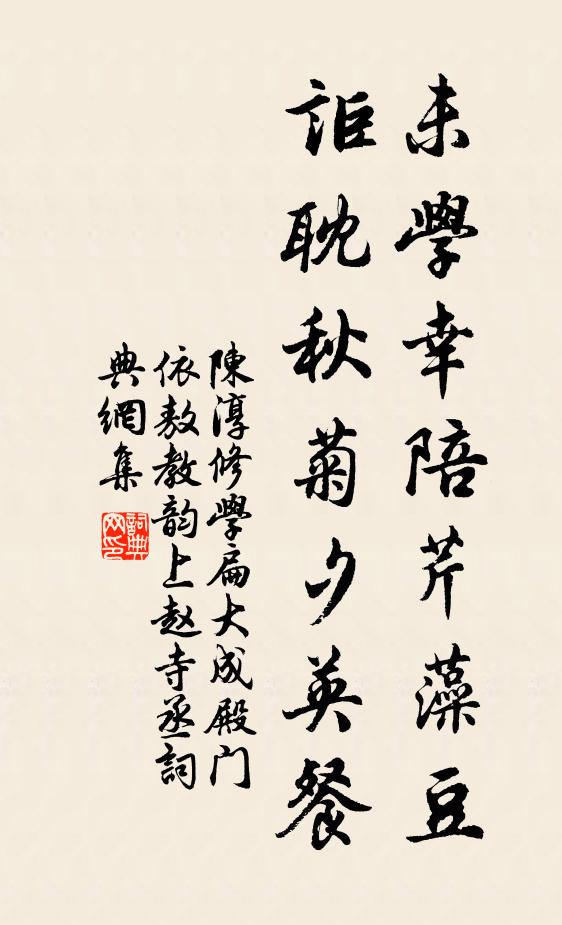 未學幸陪芹藻豆
詎耽秋菊夕英餐
陳淳修學扁大成殿门
依敖教韵上赵寺丞詞
典網集
詞典
网印